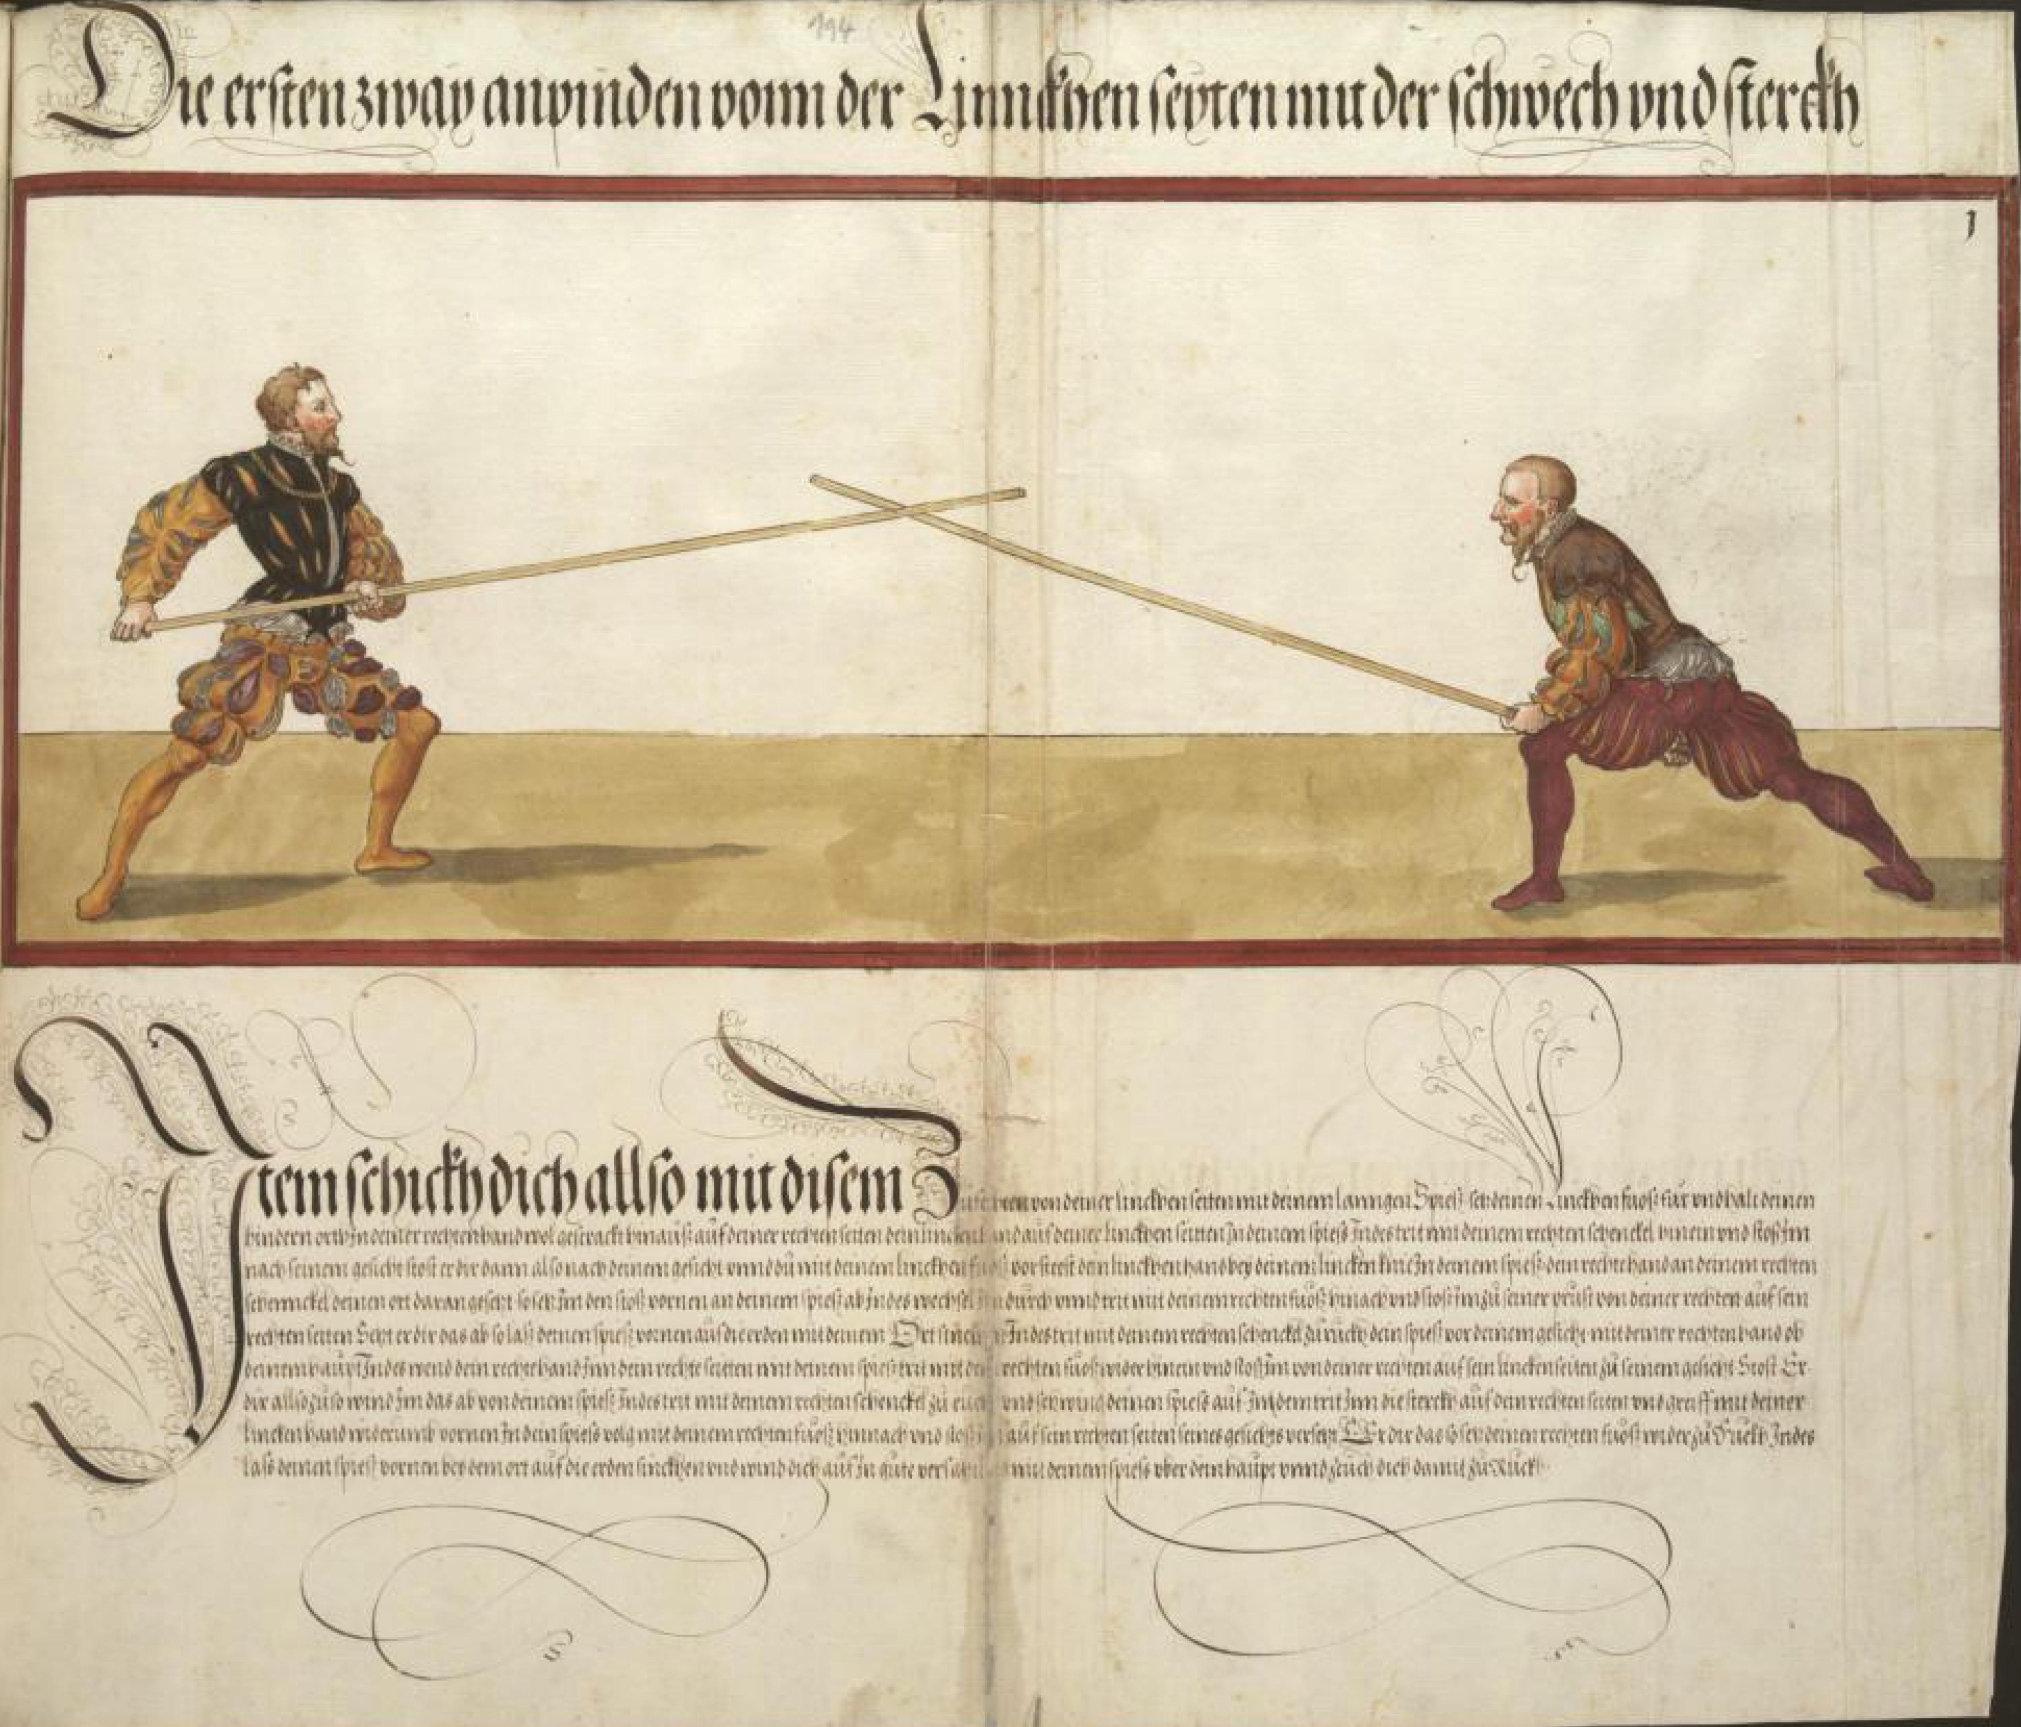 194
Die ersten zway anwinden vonn der Linnckhen seyten mit der schwech vnd sterckh
1
Item schickh dich allso mit disem Zufechten von deiner linckhen seitten mit deinem lanngen Spiesß setz deinen Linckhen fuosß für vnd halt deinen
hindern orth in deiner rechten hand wol gestrackt hinauß auf deiner rechten seiten dein lincken hand auf deiner linckhen seitten In deinem spiess Indes trit mit deinem rechten schenckel hinein vnd stoß Im
nach seinem gesicht stost er dir dann also nach deinem gesicht vnnd du mit deinem linckhen fuoß vorsteest dein linckhen hand bey deinem lincken knie In deinem spiess dein rechte hand an deinem rechten
schennckel deinen ort daran gesetzt so setz Im den stoß vornen an deinem spiess ab Indes wechsel Im durch vnnd trit mit deinem rechten fuosß hinach vnd stosß Im zu seiner prust von deiner rechten auf sein
rechten seiten Setzt er dir das ab so laß deinen spiess vornen auf die erden mit deinem Ort sincken Indes trit mit deinem rechten schenckel zuruckh dein spiess vor deinem gesicht mit deiner rechten hand ob
deinem haupt Indes wend dein rechte hand Inn dein rechte seitten mit deinem spiess trit mit dem rechten fuoß wider hinein vnd stoß Im von deiner rechten auf sein lincken seiten zu seinem gesicht Stost Er
dir allso zu so wind Im das ab von deinem spiess Indes trit mit deinem rechten schenckel zu ruck vnd schwing deinen spiess auf In dem trit Inn die sterckh auf dein rechten seiten vnd greiff mit deiner
lincken hand widerumb vornen In dein spiess volg mit deinem rechten fuosß hinnach vnd stosß Im auf sein rechten seiten seines gesichts versetzt Er dir das so setz deinen rechten fuosß wider zu Ruckh Indes
lass deinen spiess vornen bey dem ort auf die erden sinckhen vnd wind dich auf In gute versatzung mit deinem spiess vber dein haupt vnnd zeuch dich damit zu Ruckh